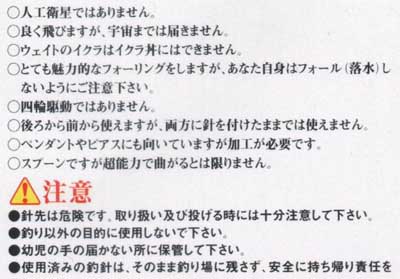 ○人工衛星ではありません。
○良く飛びますが、宇宙までは届きません。
○ウェイトのイクラはイクラ丼にはできません。
○とても魅力的なフォーリングをしますが、あなた自身はフォール(落水)し
ないようにご注意下さい。
○四輪駆動ではありません。
○後ろから前から使えますが、両方に針を付けたままでは使えません。
○ペンダントやピアスにも向いていますが加工が必要です。
○スプーンですが超能力で曲がるとは限りません。
注意
●針先は危険です。取り扱い及び投げる時には十分注意して下さい。
●釣り以外の目的に使用しないで下さい。
●幼児の手の届かない所に保管して下さい。
●使用済みの釣針は、そのまま釣り場に残さず、安全に持ち帰り責任を